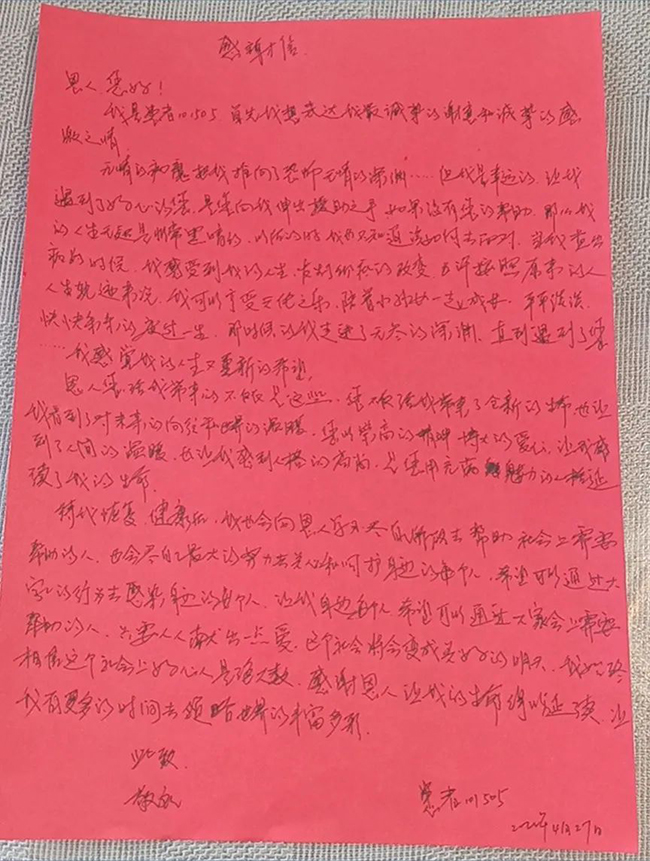 感谢信
恩人您好！
我是患者101505 首先我想表达我最诚挚的谢意和诚挚的感
激之情
无情的病魔把我推向了恐怖无情的深渊……但我是幸运的，让我
遇到了好心的您，是您向我伸出援助之手 如果没有您的帮助，那么我
的人生无疑是非常黑暗的，以后的时候也不知道该如何去面对，当我查出
病的时候，我感受到我的人生，发生的改变 按照原来的人
人生轨迹来说，我可以享受天伦之乐，陪着小孩一起成长，平平淡淡，
快快乐乐的度过一生，那时候的我走进了无尽的深渊，直到遇到了您
……我感觉我的人生又重新的希望，
恩人您给我带来的不仅是这些，您不仅给我带来了全新的生命也让
我看到了对未来的向往和世界的温暖，您以崇高的精神 博大的爱心，让我感
到了人间的温暖，也让我感到人格的高尚，是您用充满魅力的人格延
续了我的生命
待我恢复健康后，我也会向恩人学习尽自己所能去帮助社会上需要
帮助的人，也会尽自己最大的努力去关心和呵护身边的每个人，希望可以通过大
家的行为去感染身边的每个人，让我身边每个人 希望可以通过大家会上需要
帮助的人，只要人人献出一点爱，这个社会将会变成美好的明天，我始终
相信这个社会上好心人是大多数，感谢恩人让我的生命得以延续，让
我有更多的时间去领略世界的丰富多彩
此致
敬礼
患者101505
4月27日